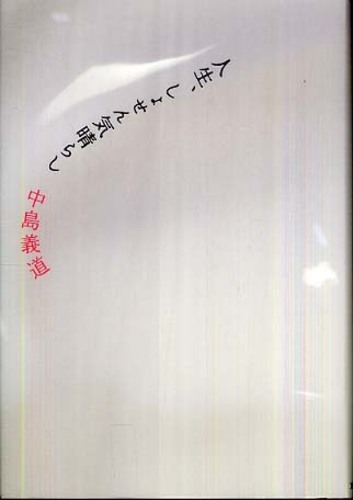 人生、しょせん気晴らし
中島義道